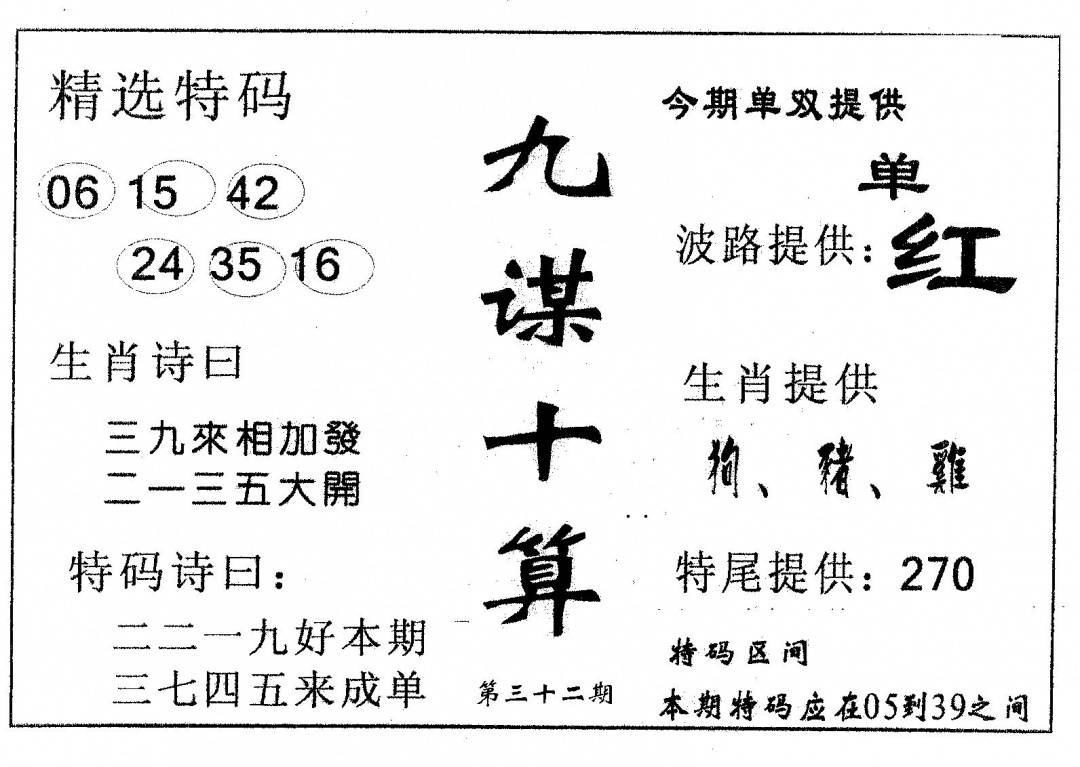 精选特码
06 15 42
24 35 16
生肖诗曰
三九來相加發
二一三五大開
特码诗曰：
二二一九好本期
三七四五来成单
九谋十算
第三十二期
今期单双提供
单
波路提供：红
生肖提供
狗、豬、雞
特尾提供：270
特码区间
本期特码应在05到39之间